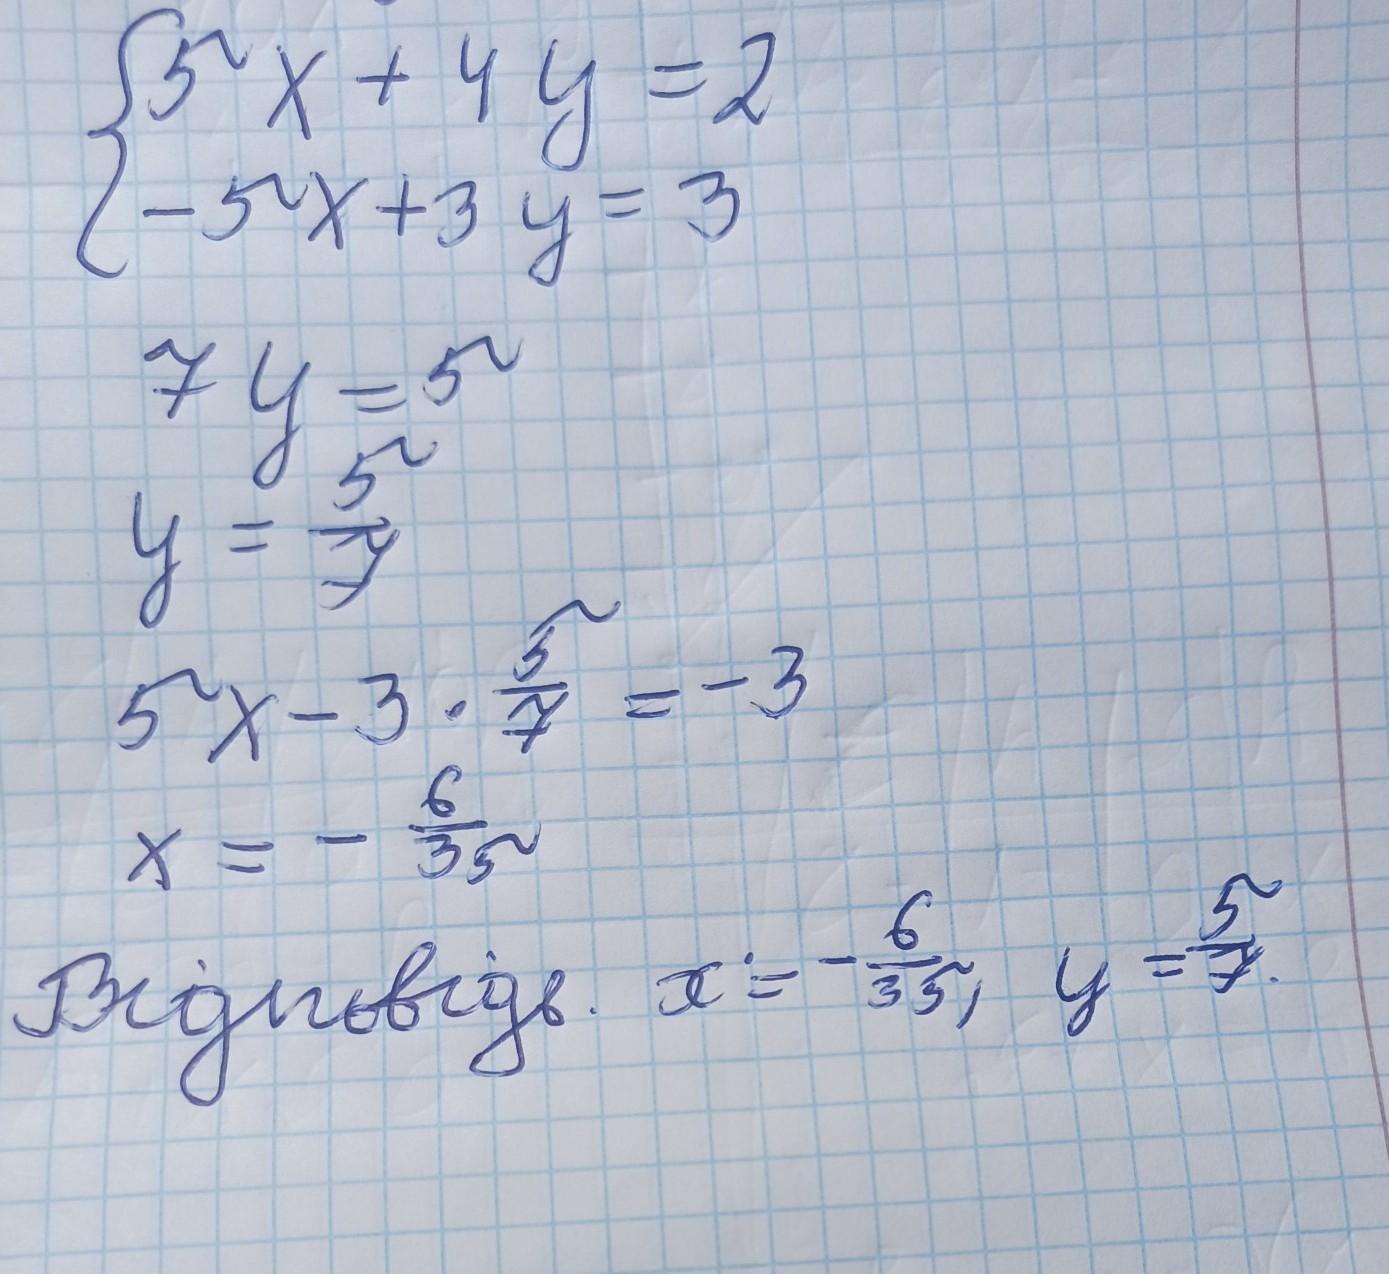 {5x + 4y = 2
-5x + 3y = 3
7y = 5
y = 5/7
5x - 3 · 5/7 = -3
x = - 6/35
Відповідь. x = - 6/35, y = 5/7.